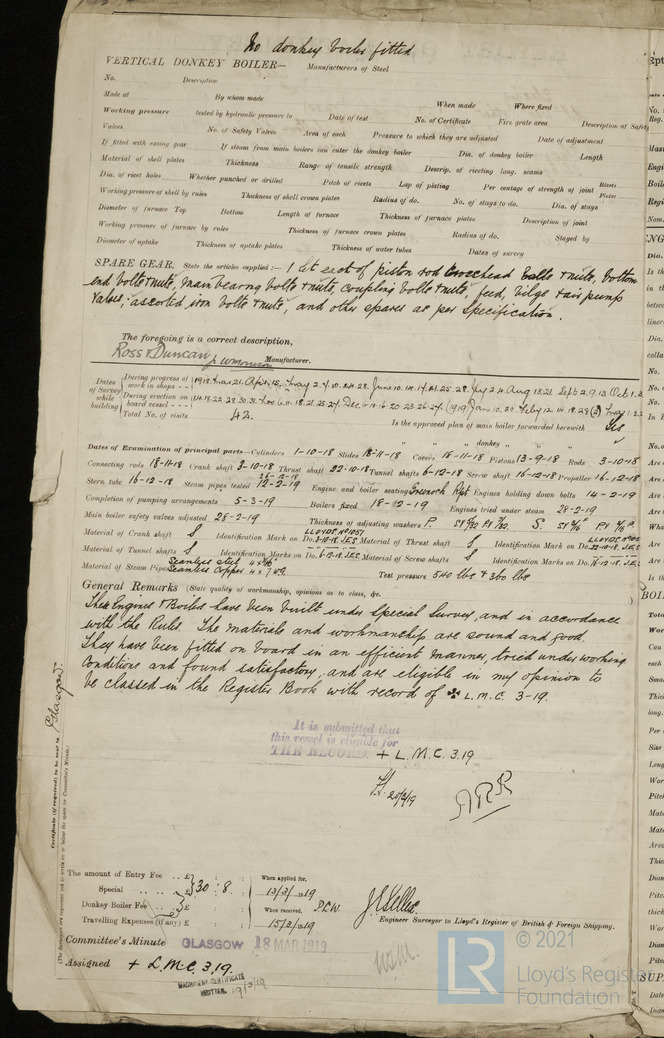 No donkey boiler fitted
VERTICAL DONKEY BOILER— Manufacturers of Steel
No. Description
Made at By whom made When made Where fixed
Working pressure tested by hydraulic pressure to Date of test No. of Certificate Fire grate area Description of Safety
Valves No. of Safety Valves Area of each Pressure to which they are adjusted Date of adjustment
If fitted with easing gear If steam from main boilers can enter the donkey boiler Dia. of donkey boiler Length
Material of shell plates Thickness Range of tensile strength Descrip. of riveting long. seams
Dia. of rivet holes Whether punched or drilled Pitch of rivets Lap of plating Per centage of strength of joint Rivets Plates
Working pressure of shell by rules Thickness of shell crown plates Radius of do. No. of stays to do. Dia. of stays
Diameter of furnace Top Bottom Length of furnace Thickness of furnace plates Description of joint
Working pressure of furnace by rules Thickness of furnace crown plates Radius of do. Stayed by
Diameter of uptake Thickness of uptake plates Thickness of water tubes Dates of survey
SPARE GEAR. State the articles supplied:— 1 set each of piston rod crosshead bolts & nuts, bottom
end bolts & nuts, main bearing bolts & nuts, coupling bolts & nuts, feed, bilge & air pump
Valves, assorted iron bolts & nuts, and other spares as per Specification.
The foregoing is a correct description,
Ross & Duncan Manufacturer.
Dates of Survey while building
During progress of work in shops - - 1918. Mar 21. Apr 4. 15. May 2. 7. 10. 24. 28. June 10. 14. 17. 21. 25. 28. July 2. 4. Aug 13. 21. Sept 2. 9. 13 Oct 1. 3.
During erection on board vessel - - - 14. 18. 22. 28. 30. 31. Nov 6. 11. 18. 21. 25. 27. Dec 6. 12. 16. 20. 23. 26. 27. (1919) Jan 10. 22. Feby 12. 14. 18. 28
Total No. of visits 42. Is the approved plan of main boiler forwarded herewith Yes
" " " donkey " " "
Dates of Examination of principal parts—Cylinders 1-10-18 Slides 18-11-18 Covers 18-11-18 Pistons 13-9-18 Rods 3-10-18
Connecting rods 18-11-18 Crank shaft 3-10-18 Thrust shaft 22-10-18 Tunnel shafts 6-12-18 Screw shaft 16-12-18 Propeller 16-12-18
Stern tube 16-12-18 Steam pipes tested 12-2-19 Engine and boiler seatings Greenock Rpt Engines holding down bolts 14-2-19
Completion of pumping arrangements 5-3-19 Boilers fixed 18-12-19 Engines tried under steam 28-2-19
Main boiler safety valves adjusted 28-2-19 Thickness of adjusting washers
Material of Crank shaft S Identification Mark on Do. LLOYDS No 1051 3-10-18. J.E.S. Material of Thrust shaft S Identification Mark on Do. 22-10-18. J.E.S.
Material of Tunnel shafts S Identification Marks on Do. 6-12-18. J.E.S. Material of Screw shafts S Identification Marks on Do. 16-12-18. J.E.S.
Material of Steam Pipes Seamless steel Seamless Copper Test pressure 540 lbs & 360 lbs
General Remarks (State quality of workmanship, opinions as to class, &c.
These Engines & Boilers have been built under Special Survey, and in accordance
with the Rules. The materials and workmanship are sound and good.
They have been fitted on board in an efficient manner, tried under working
conditions and found satisfactory, and are eligible in my opinion to
be classed in the Register Book with record of ✠ L.M.C. 3-19.
It is submitted that
this vessel is eligible for
THE RECORD. + L.M.C. 3.19
20/3/19
Glasgow.
Certificate (if required) to be sent to
The amount of Entry Fee .. £
Special .. .. £ 30 : 8 :
Donkey Boiler Fee £
Travelling Expenses (if any) £
When applied for, 13/3/1919
When received, 15/3/1919
Engineer Surveyor to Lloyd's Register of British & Foreign Shipping.
Committee's Minute GLASGOW 18 MAR 1919
Assigned + L.M.C. 3.19.
MACHINERY CERTIFICATE
WRITTEN. 19/3/19
© 2021
LR Lloyd's Register
Foundation